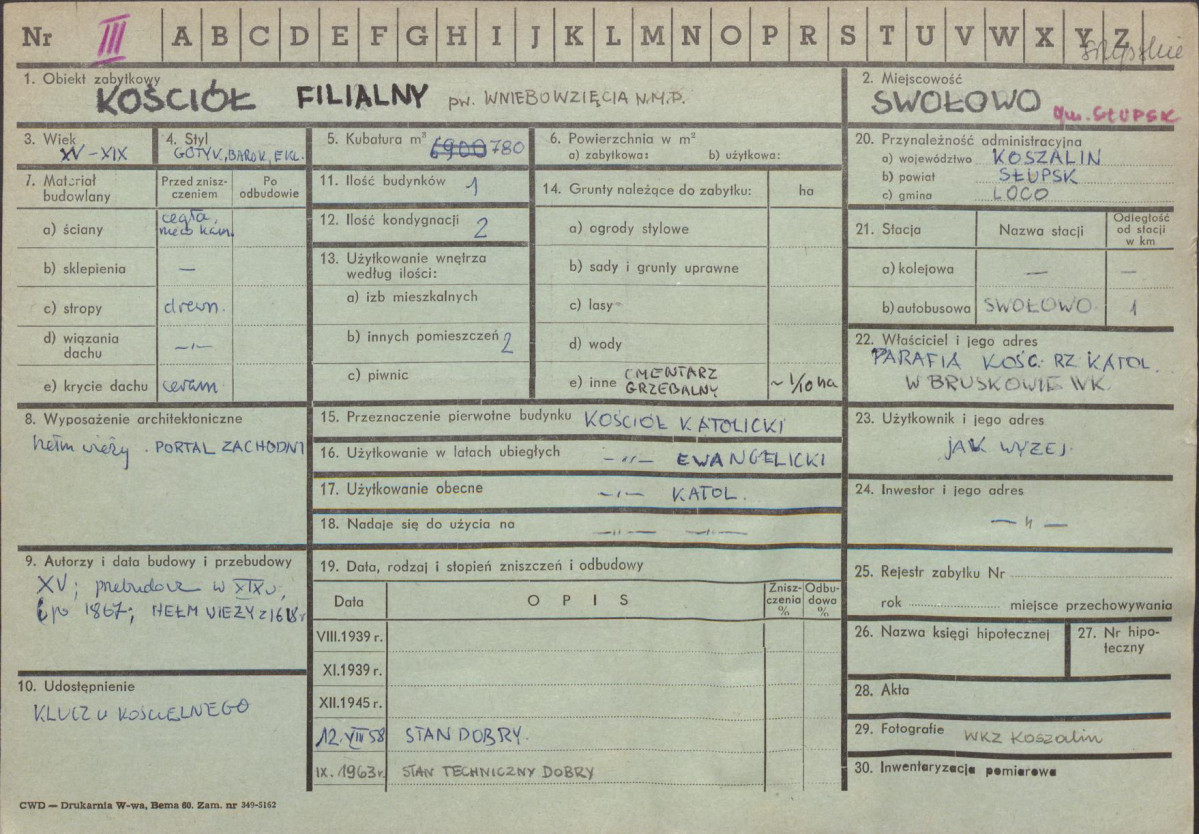 Nr III A B C D E F G H I J K L M N O P R S T U V W X Y Z
słupskie
1. Obiekt zabytkowy
KOŚCIÓŁ FILIALNY pw. WNIEBOWZIĘCIA N.M.P.
2. Miejscowość
SWOŁOWO
gm. SŁUPSK
3. Wiek
XV-XIX
4. Styl
GOTYK, BAROK, EKL.
5. Kubatura m³ 6900 780
6. Powierzchnia w m²
a) zabytkowa: b) użytkowa:
7. Materiał budowlany
Przed zniszczeniem
Po odbudowie
a) ściany cegła,
b) sklepienia —
c) stropy drewn.
d) wiązania dachu —„—
e) krycie dachu ceram.
8. Wyposażenie architektoniczne
hełm wieży. PORTAL ZACHODNI
9. Autorzy i data budowy i przebudowy
XV; przebudow w XIX w,
po 1867; HEŁM WIEŻY z
10. Udostępnienie
KLUCZ U KOŚCIELNEGO
11. Ilość budynków 1
12. Ilość kondygnacji 2
13. Użytkowanie wnętrza według ilości:
a) izb mieszkalnych
b) innych pomieszczeń 2
c) piwnic
14. Grunty należące do zabytku: ha
a) ogrody stylowe
b) sady i grunty uprawne
c) lasy
d) wody
e) inne CMENTARZ GRZEBALNY ~ 1/10 ha
15. Przeznaczenie pierwotne budynku KOŚCIÓŁ KATOLICKI
16. Użytkowanie w latach ubiegłych —„— EWANGELICKI
17. Użytkowanie obecne —„— KATOL.
18. Nadaje się do użycia na —„— —„—
19. Data, rodzaj i stopień zniszczeń i odbudowy
Data OPIS Zniszczenia % Odbudowa %
VIII.1939 r.
XI.1939 r.
XII.1945 r.
12.VIII 58 STAN DOBRY.
IX. 1963 r. STAN TECHNICZNY DOBRY
20. Przynależność administracyjna
a) województwo KOSZALIN
b) powiat SŁUPSK
c) gmina LOCO
21. Stacja Nazwa stacji Odległość od stacji w km
a) kolejowa — —
b) autobusowa SWOŁOWO 1
22. Właściciel i jego adres
PARAFIA KOŚC. RZ KATOL.
W BRUSKOWIE WK.
23. Użytkownik i jego adres
JAK WYŻEJ.
24. Inwestor i jego adres
—„—
25. Rejestr zabytku Nr
rok miejsce przechowywania
26. Nazwa księgi hipotecznej
27. Nr hipoteczny
28. Akta
29. Fotografie WKZ Koszalin
30. Inwentaryzacja pomiarowa
CWD — Drukarnia W-wa, Bema 60. Zam. nr 349-5162